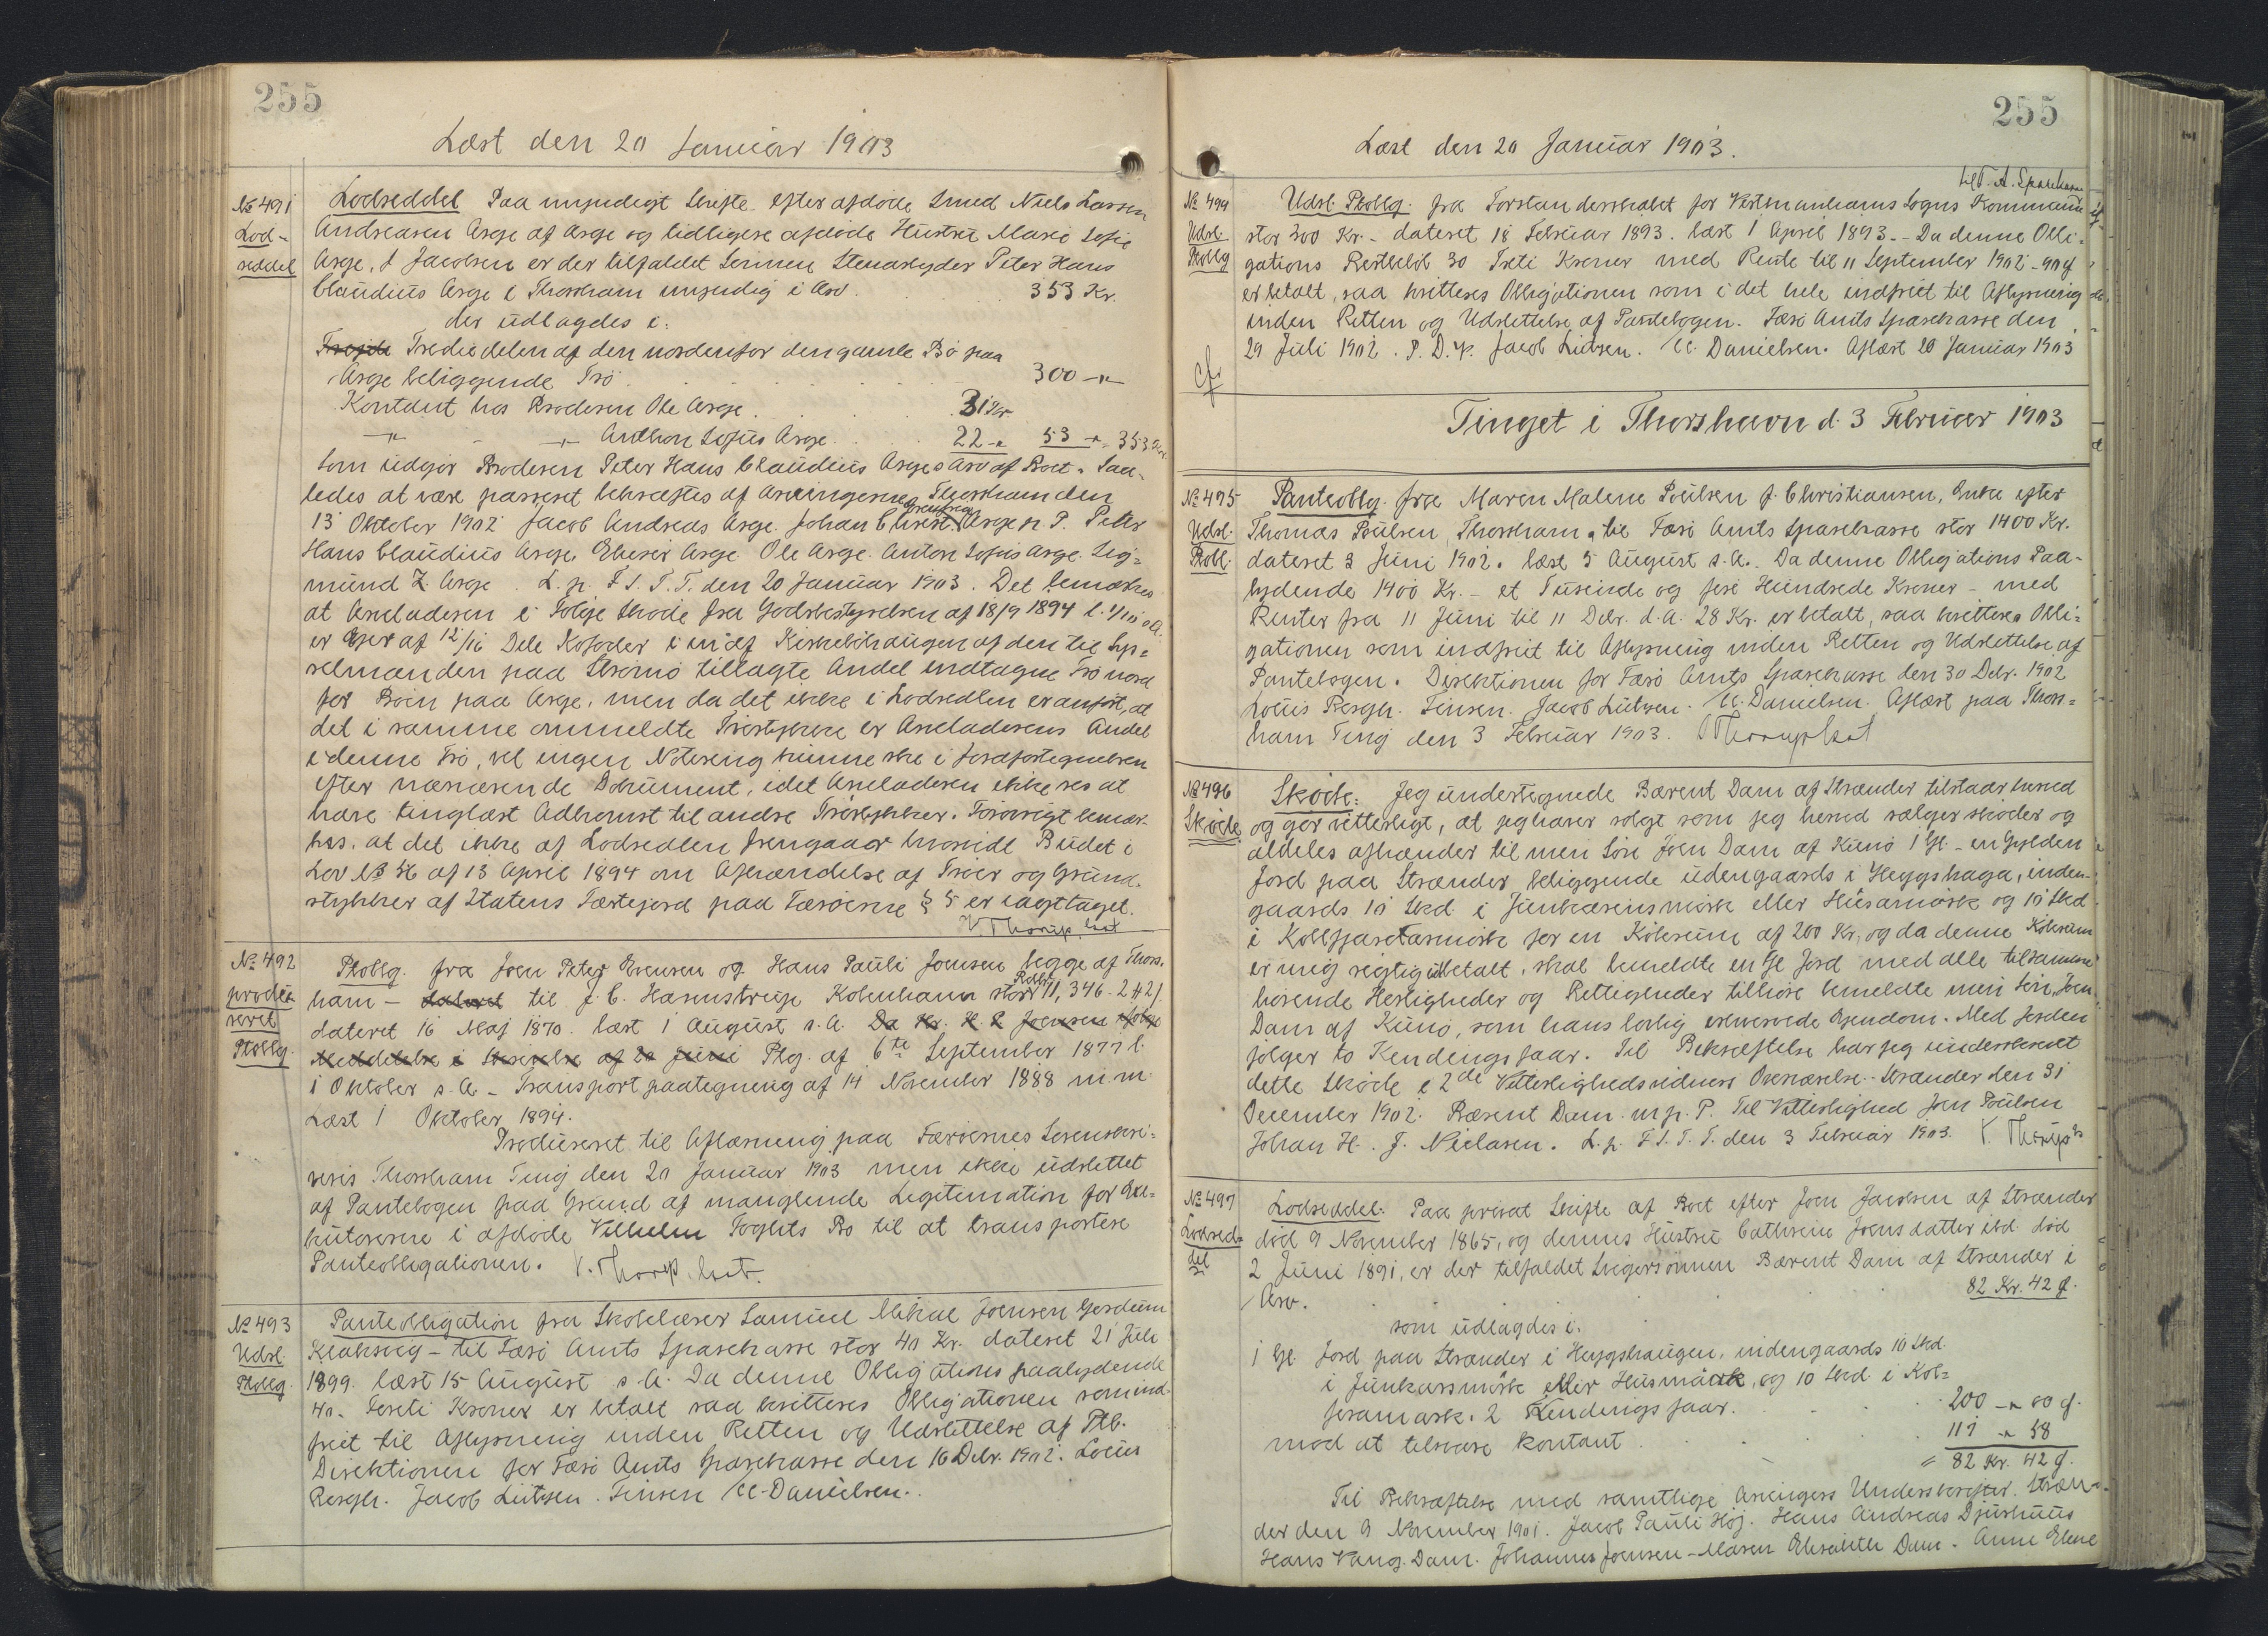 255
Læst den 20 Januar 1903
No 491
Lod-
seddel
Lodseddel Paa uskyldigt Skifte efter afdøde Smed Niels Lassen
Andreasen Arge af Arge og tidligere afdøde Hustru Marie Sofie
Arge, f Jacobsen er der tilfaldet Sønnen Stenarbyder Peter Hans
Claudius Arge i Thorshavn i Arv. 353 Kr.
der udlagdes i:
Trediedelen af den nordenfor den gamle Bø paa
Arge beliggende Trø 300 -"-
Kontant hos Broderen Ole Arge. 31 Kr.
-"- - -"- Anthon Sofus Arge 22 -"- 53 -"- = 353 Kr.
som udgør Broderen Peter Hans Claudius Arges Arv af Boet. Saa-
ledes at være passeret bekræftes af Arvingerne. Thorshavn den
13 Oktober 1902 Jacob Andreas Arge. Johan Christ. Arge p. P. Peter
Hans Claudius Arge Elieser Arge Ole Arge. Anton Sofus Arge. Sig-
mund Z. Arge L. p. F. S. T. T. den 20 Januar 1903. Det bemærkes
at Arveladeren i Følge Skøde fra Godsbestyrelsen af 18/9 1894 l. 1/10 s. A.
er Ejer af 12/16 Dele Kofoder i en af Kirkebøhaugen af den til Sys-
selmanden paa Strømø tillagte Andel indtagne Trø nord
for Bøen paa Arge, men da det ikke i Lodsedlen er anført, at
det i samme ommeldte Trøstykke er Arveladerens Andel
i denne Trø, vil ingen Notering kunne ske i Jordfortegnelsen
efter nærværende Dokument, idet Arveladeren ikke ses at
have tinglæst Adkomst til andre Trøstykker. Forøvrigt bemær-
kes, at det ikke af Lodsedlen fremgaar hvorvidt Budet i
Lov No 56 af 13 April 1894 om Afhændelse af Trøer og Grund-
stykker af Statens Fæstejord paa Færøerne § 5 er iagttaget.
V. Thorup. kst
No 492
produ-
ceret
Ptoblg.
Ptoblg. fra Joen Peter Evensen og Hans Pauli Joensen begge af Thors-
havn - dateret til J. C. Hasenstrup København stor Rdlr. 11,346. 2 # 2 ß
dateret 16 Maj 1870. læst 1 August s. A. Da Hr. H. P. Joensen ifølge
Meddelelse i Skrivelse af 20 Juni Ptg. af 6te September 1877 l.
1 Oktober s. A. - Transportpaategning af 14 November 1888 m.m.
Læst 1 Oktober 1894.
Produceret til Aflæsning paa Færøernes Sorenskri-
veris Thorshavn Ting den 20 Januar 1903 men ikke udslettet
af Pantebogen paa Grund af manglende Legitimation for Exe-
kutorerne i afdøde Vilhelm Foghts Bo til at transportere
Panteobligationen. V. Thorup. kst.
No 493
Udsl.
Ptoblg.
Panteobligation fra Skolelærer Samuel Mikal Joensen Gerdum
Klaksvig - til Færø Amts Sparekasse stor 40 Kr. dateret 21 Juli
1899. læst 15 August s. A. Da denne Obligations paalydende
40. Fyrreti Kroner er betalt saa kvitteres Obligationen som ind-
friet til Aflysning inden Retten og Udslettelse af Ptb.
Direktionen for Færø Amts Sparekasse den 16 Debr. 1902. Louis
Bergh. Jacob Lützen. Finsen M. C. Danielsen.
255
Læst den 20 Januar 1903.
No 494
Udsl.
Ptoblg
til T. A. Sparekasse
Udsl. Ptoblg. fra Forstanderskabet for Vestmanhavns Sogns Kommune
stor 300 Kr. - dateret 18 Februar 1893. læst 1 April 1893. - Da denne Obli-
gations Restbeløb 30 Treti Kroner med Rente til 11 September 1902 - 90 ø
er betalt, saa kvitteres Obligationen som i det hele indfriet til Aflysning
inden Retten og Udslettelse af Pantebogen. Færø Amts Sparekasse den
29 Juli 1902. P. D. V. Jacob Lützen. M. C. Danielsen. Aflæst 20 Januar 1903
cfr
Tinget i Thorshavn d. 3 Februar 1903
No 495
Udsl.
Ptobl.
Panteoblg. fra Maren Malene Poulsen f. Christiansen, Enke efter
Thomas Poulsen, Thorshavn, til Færø Amts Sparekasse stor 1400 Kr.
dateret 3 Juni 1902. læst 5 August s. A. Da denne Obligations Paa-
lydende 1400 Kr. - et Tusinde og fire Hundrede Kroner - med
Renter fra 11 Juni til 11 Debr. d. A. 28 Kr. er betalt, saa kvitteres Obli-
gationen som indfriet til Aflysning inden Retten og Udslettelse af
Pantebogen. Direktionen for Færø Amts Sparekasse den 30 Debr. 1902
Louis Bergh. Finsen. Jacob Lützen. M. C. Danielsen. Aflæst paa Thors-
havn Ting den 3 Februar 1903. V Thorup kst
No 496
Skøde
Skøde: Jeg undertegnede Bærent Dam af Strænder tilstaar herved
og gør vitterligt, at jeg haver solgt som jeg herved sælger skøder og
aldeles afhænder til min Søn Joen Dam af Kunø 1 Gl. - en Gylden
Jord paa Strænder beliggende udengaards i Heygshaga, inden-
gaards 10 Skd i Junkarensmørk eller Husamørk og 10 Skd
i Kolbjaretarmørk for en Købesum af 200 Kr, og da denne Købesum
er mig rigtig udbetalt, skal bemeldte en Gl Jord med alle tilsamme
hørende Herligheder og Rettigheder tilhøre bemeldte min Søn Joen
Dam af Kunø, som hans lovlig erhvervede Ejendom. Med Jorden
følger to Kendingsfaar. Til Bekræftelse har jeg underskrevet
dette Skøde i 2de Vitterlighedsvidners Overværelse. Strænder den 31
December 1902. Bærent Dam. m. p. P. Til Vitterlighed Joen Poulsen
Johan H. J. Nielasen. L. p. F. S. T. T. den 3 Februar 1903. V. Thorup
No 497
Lodsed-
del
Lodseddel. Paa privat Skifte af Boet efter Joen Jacobsen af Strænder
død 9 November 1865, og dennes Hustru Cathrine Joensdatter ibd. død
2 Juni 1891, er der tilfaldet Svigersønnen Bærent Dam af Strænder i
Arv. 82 Kr. 42 ø.
som udlagdes i:
1 Gl. Jord paa Strænder i Heygshaugen, indengaards 10 Skd.
i Junkarsmørk eller Husmørk, og 10 Skd i Kol-
jeramørk. 2 Kendingsfaar. 200 -"- 00 ø.
mod at tilsvare kontant 117 -"- 58
= 82 Kr. 42 ø.
Til Bekræftelse med samtlige Arvingers Underskrifter. Stræn-
der den 9 November 1901. Jacob Pauli Høj. Hans Andreas Djurhuus
Hans Vang. Dam. Johannes Joensen - Maren Elisabeth Dam. Anne Elene